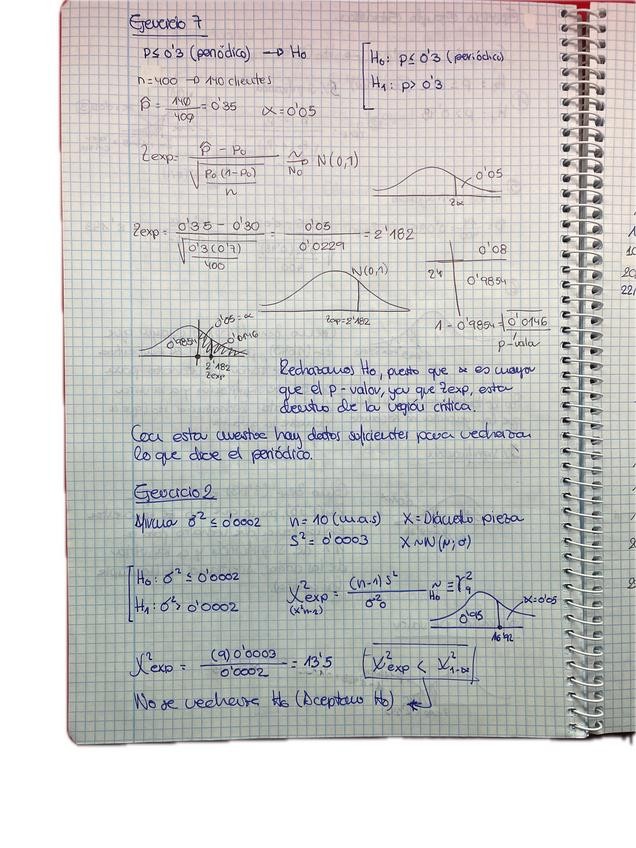 Ejercicio 7
p ≤ 0'3 (periódico) → H₀
n = 400 → 140 clientes
p̂ = 140/400 = 0'35   α = 0'05
[H₀: p ≤ 0'3 (periódico)
H₁: p > 0'3
Zexp = (p̂ - p₀)/√(p₀(1-p₀)/n) ~ N(0,1)
H₀
0'05
Zα
Zexp = (0'35 - 0'30)/√(0'3(0'7)/400) = 0'05/0'0229 = 2'182
N(0,1)
Zexp = 2'182
0'08
2'1
0'9854
1 - 0'9854 = 0'0146
p-valor
0'05 = α
0'9854
0'0146
2'182
Zexp
Rechazamos H₀, puesto que α es mayor
que el p-valor, ya que Zexp, esta
dentro de la región crítica.
Con esta muestra hay datos suficientes para rechazar
lo que dice el periódico.
Ejercicio 2
Afirma σ² ≤ 0'0002   n = 10 (m.a.s)   X = Diámetro pieza
S² = 0'0003   X ~ N(μ; σ)
[H₀: σ² ≤ 0'0002
H₁: σ² > 0'0002
χ²exp = (n-1) s²/σ²₀ ~ ≡ χ²₉
(χ²n-1)
H₀
α = 0'05
0'95
16'92
χ²exp = (9) 0'0003/0'0002 = 13'5   χ²exp < χ²₁₋α
No se rechaza H₀ (Acepto H₀) ←